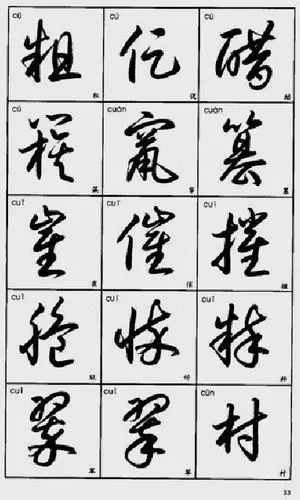 cū cù cù
粗 促 醋
cù cuàn cuàn
簇 竄 篡
cuī cuī cuī
崔 催 摧
cuì cuì cuì
脆 悴 粹
cuì cuì cūn
翠 翠 村
33